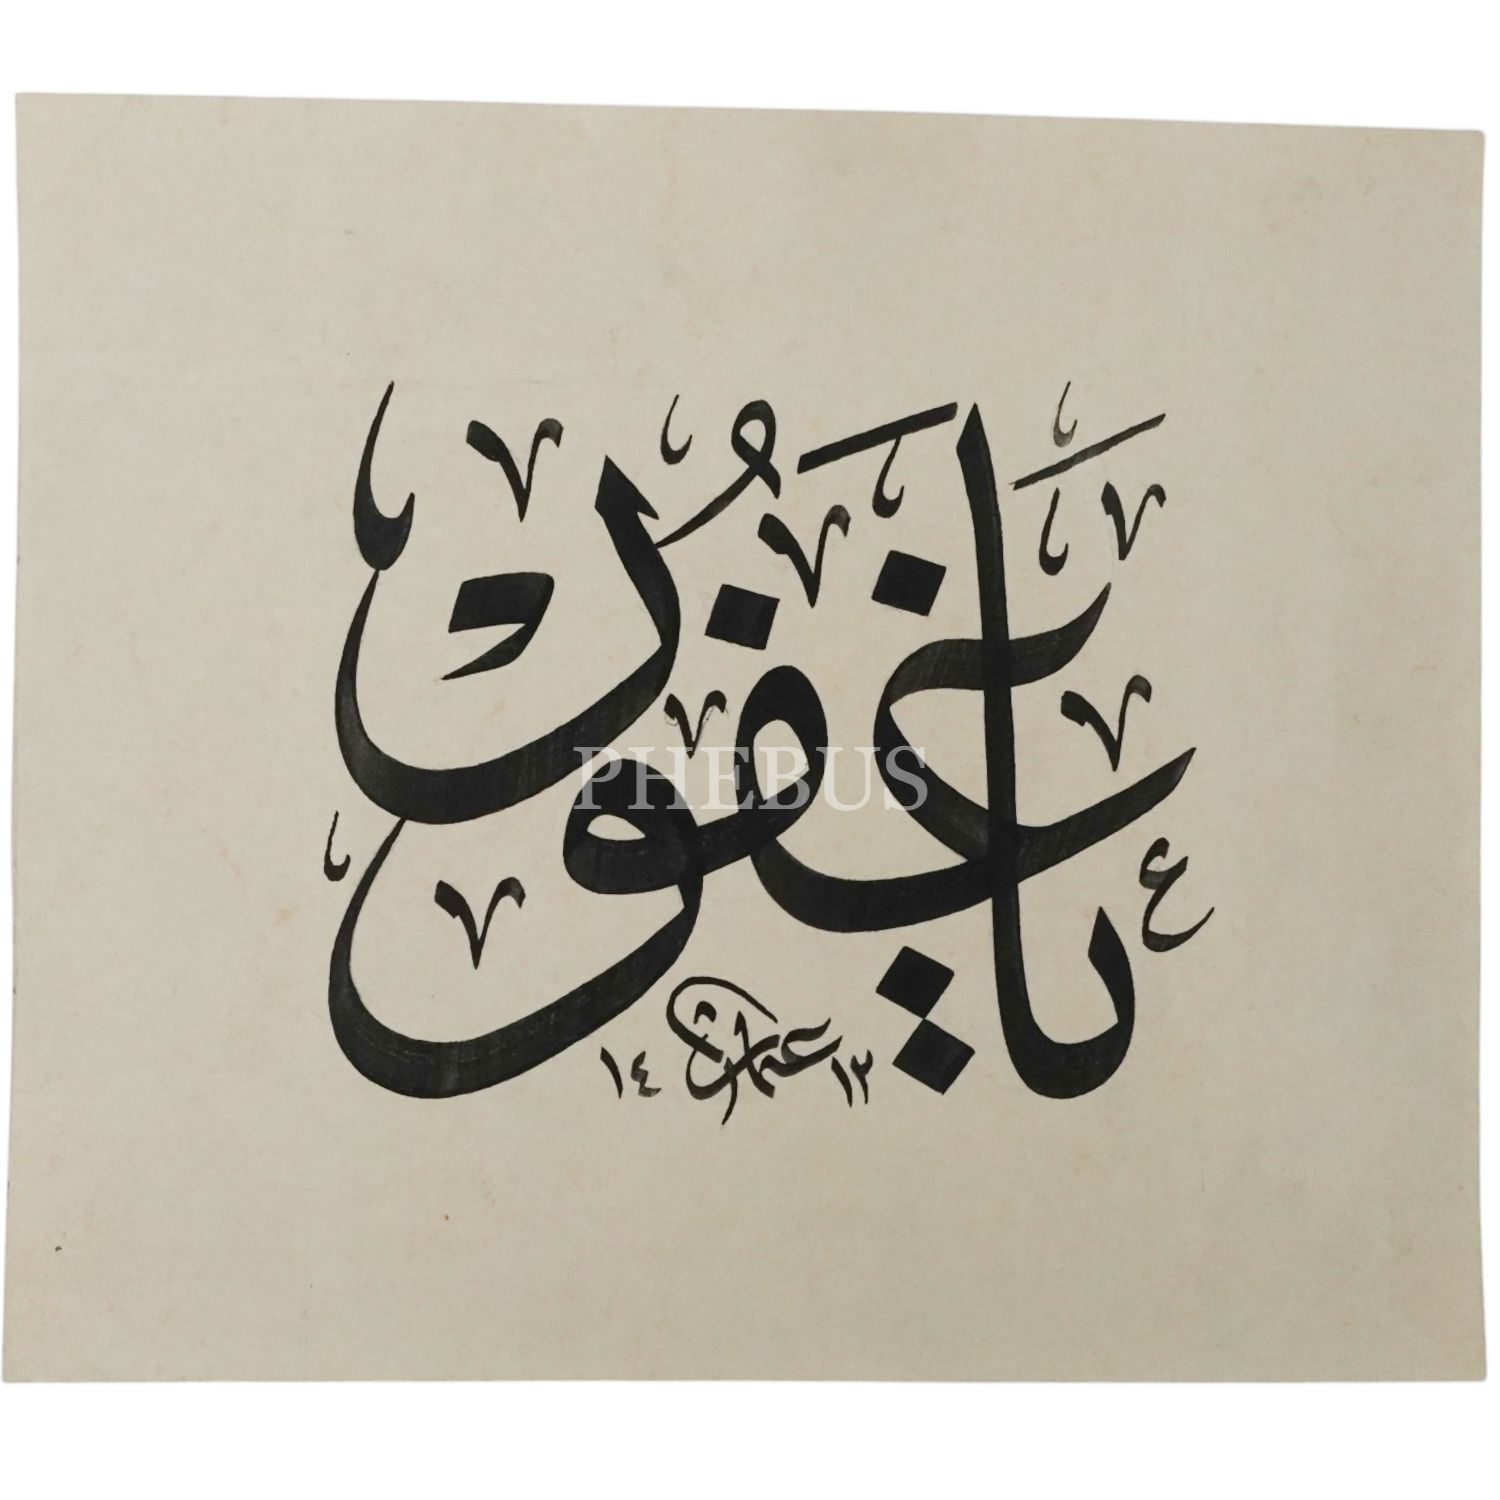 يَا غَفُورُ
١٤ عثمان ١٢
PHEBUS